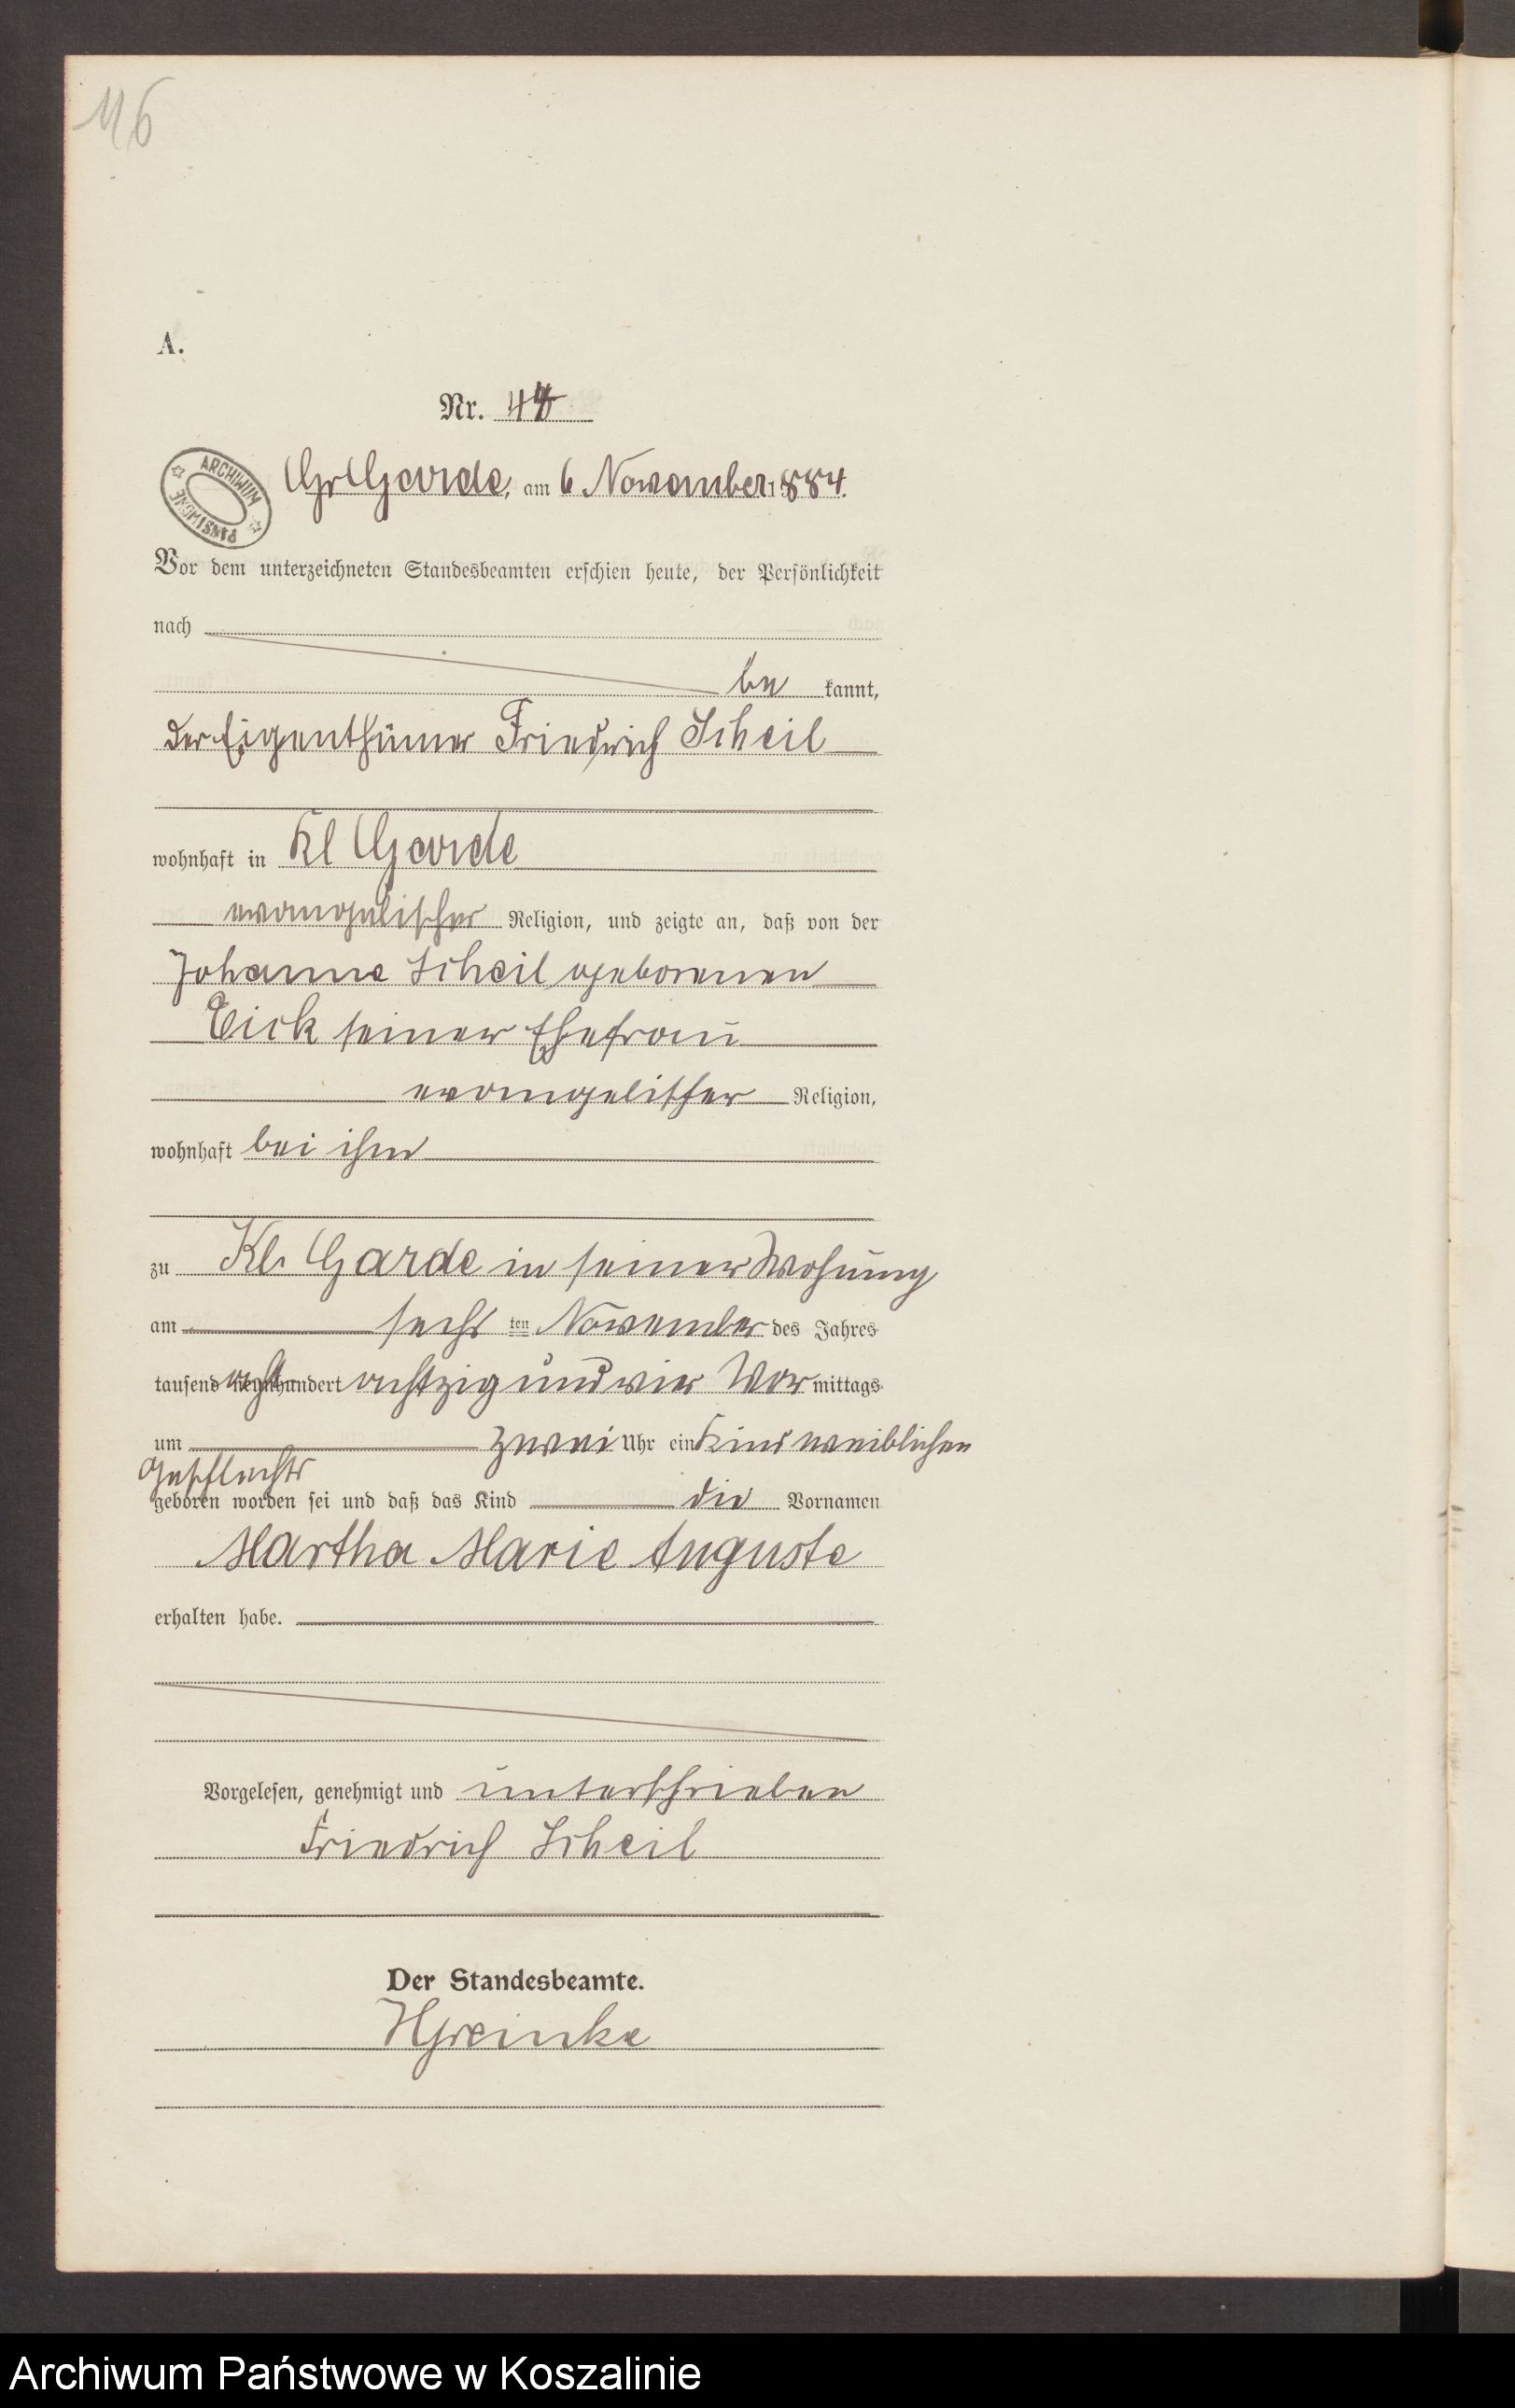 116
A.
Nr. 44
ARCHIWUM PAŃSTWOWE
Gr Garde, am 6 November 1884.
Vor dem unterzeichneten Standesbeamten erschien heute, der Persönlichkeit
nach
be kannt,
der Eigenthümer Friedrich Scheil
wohnhaft in Kl Garde
evangelischer Religion, und zeigte an, daß von der
Johanne Scheil geborenen
Eick seiner Ehefrau
evangelischer Religion,
wohnhaft bei ihm
zu Kl. Garde in seiner Wohnung
am sechs ten November des Jahres
tausend acht hundert achtzig und vier Vor mittags
um zwei Uhr ein Kind weiblichen
Geschlechts
geboren worden sei und daß das Kind die Vornamen
Martha Marie Auguste
erhalten habe.
Vorgelesen, genehmigt und unterschrieben
Friedrich Scheil
Der Standesbeamte.
HGreinke
Archiwum Państwowe w Koszalinie